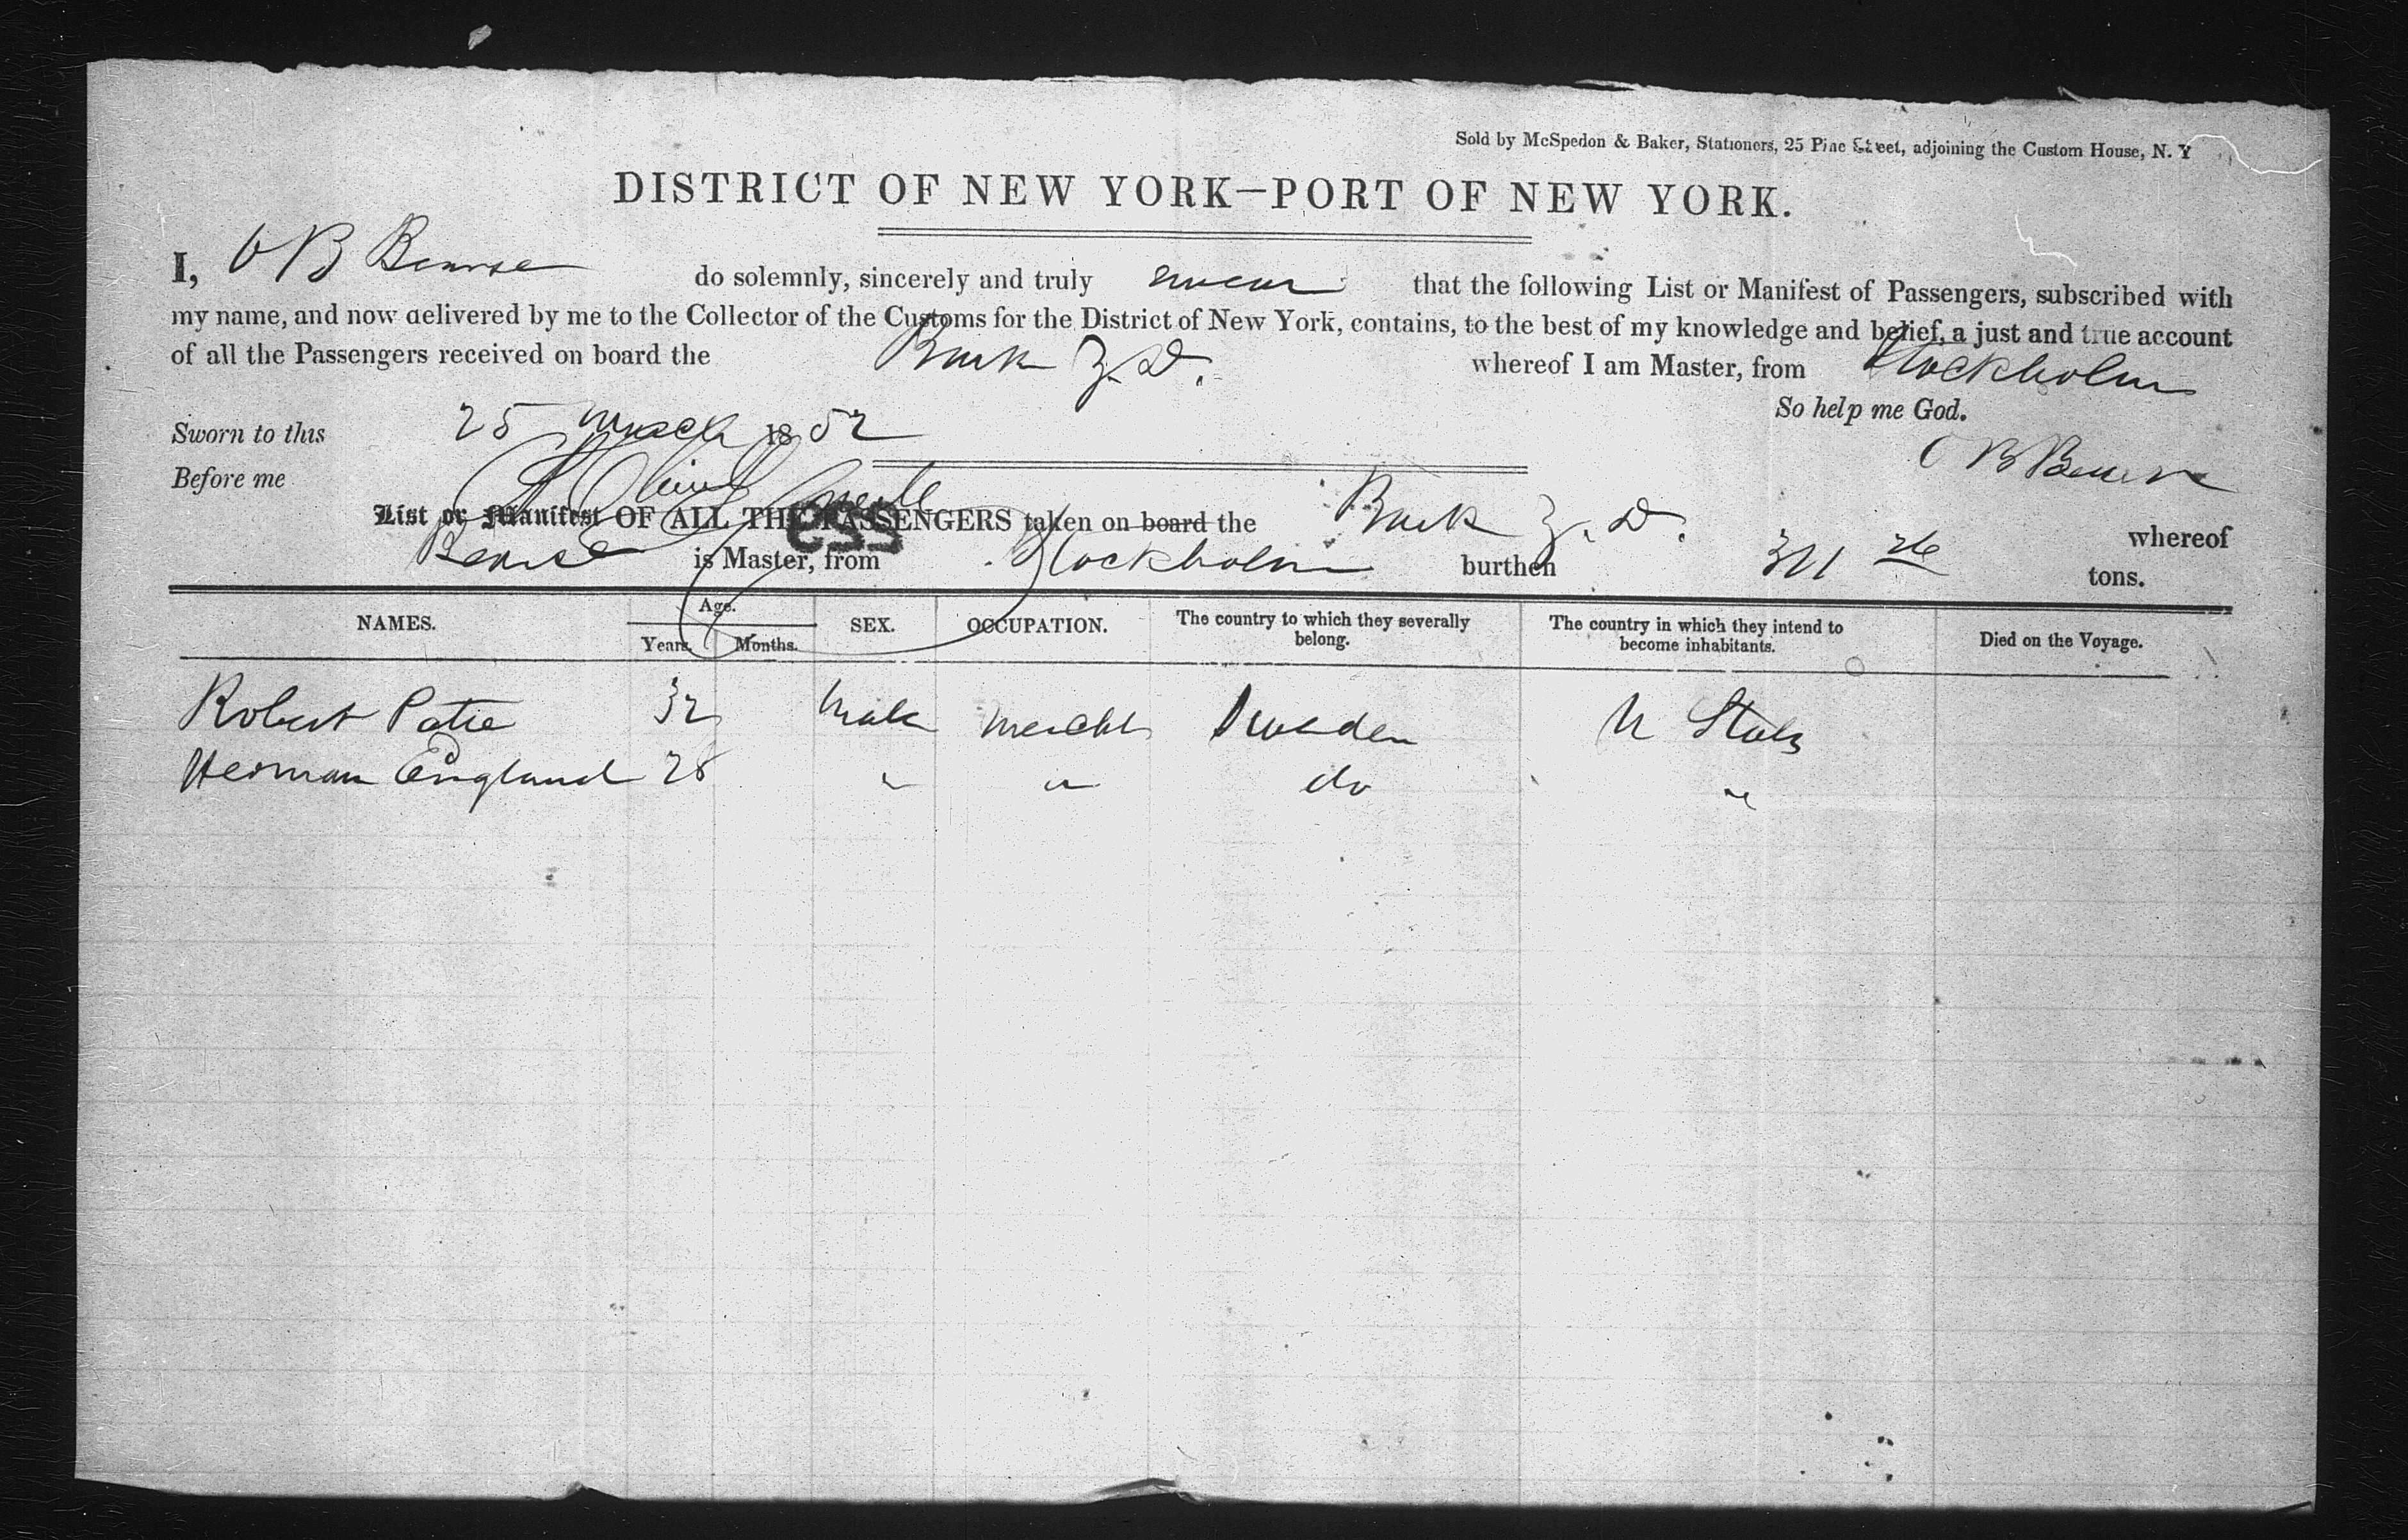 Sold by McSpedon & Baker, Stationers, 25 Pine Street, adjoining the Custom House, N. Y
DISTRICT OF NEW YORK—PORT OF NEW YORK.
I, O B Bearse do solemnly, sincerely and truly swear that the following List or Manifest of Passengers, subscribed with
my name, and now delivered by me to the Collector of the Customs for the District of New York, contains, to the best of my knowledge and belief, a just and true account
of all the Passengers received on board the Bark Z. D. whereof I am Master, from Stockholm
So help me God.
Sworn to this 25 March 1852
O B Bearse
Before me
List or Manifest OF ALL THE PASSENGERS taken on board the Bark Z. D. whereof
Bearse is Master, from Stockholm burthen 311 26 tons.
NAMES. Age. Years. Months. SEX. OCCUPATION. The country to which they severally belong. The country in which they intend to become inhabitants. Died on the Voyage.
Robert Patie 32 Male Mercht Sweden U States
Herman England 28 " " do "